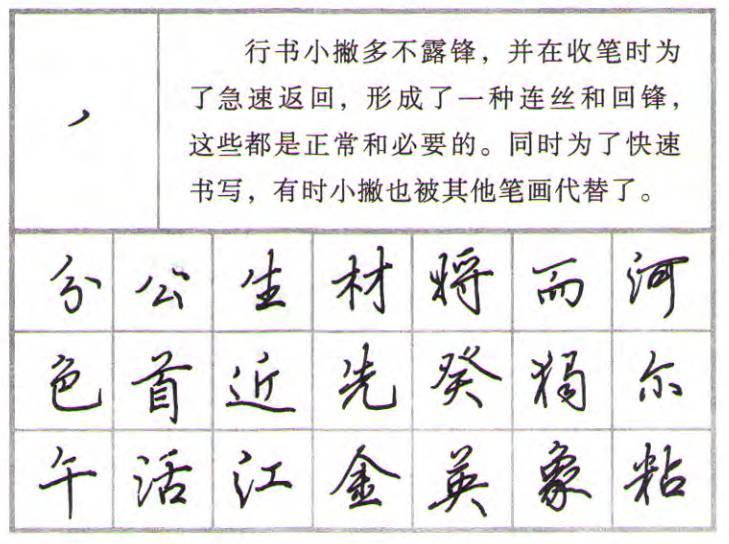 行书小撇多不露锋，并在收笔时为
了急速返回，形成了一种连丝和回锋，
这些都是正常和必要的。同时为了快速
书写，有时小撇也被其他笔画代替了。
分 公 生 材 将 而 河
色 首 近 先 癸 獨 尔
午 活 江 金 英 象 粘